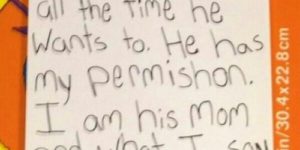 all the time he
Wants to. He has
my permishon.
I am his Mom
and what I say
in/30.4x22.8cm